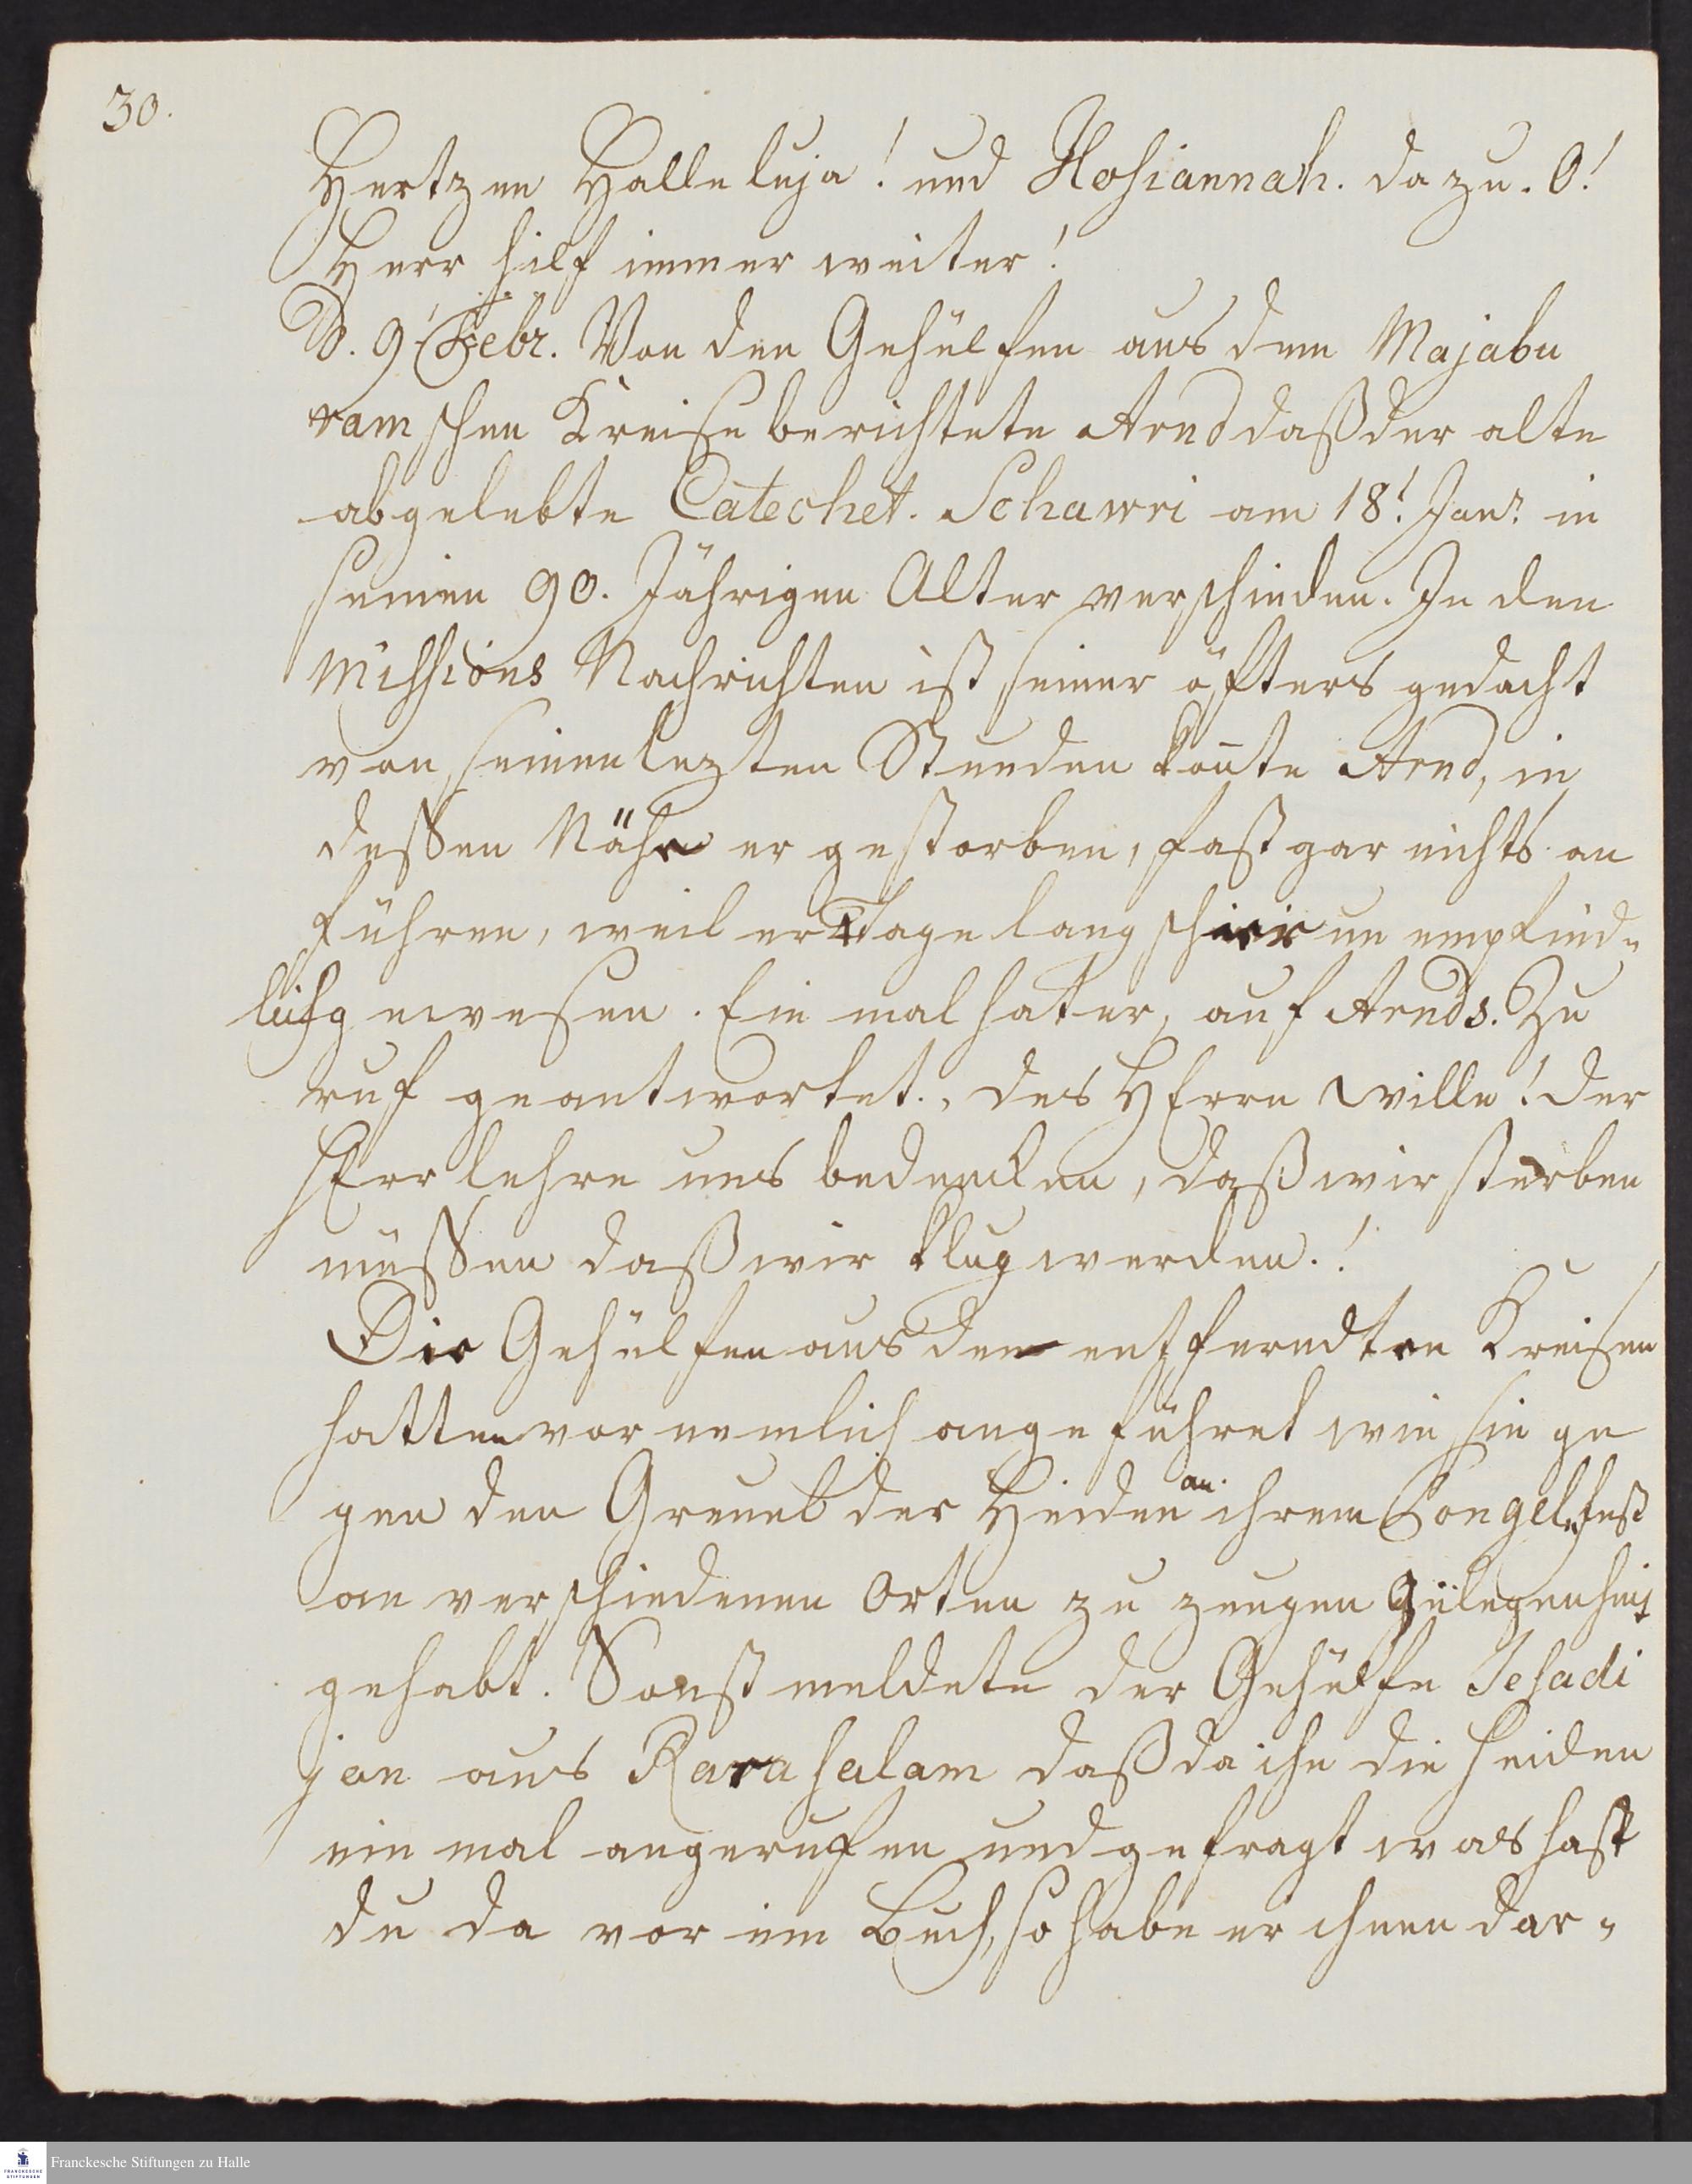 30.
Hertzen Halleluja! und Hosiannah. dazu. O!
Herr hilf immer weiter!
D. 9' Febr. Von den Gehülfen aus dem Majabu
ramschen Kreise berichtete Arnd daß der alte
abgelebte Catechet. Schawri am 18! Janr. in
seinen 90. Jährigen Alter verschieden. In den
Missions Nachrichten ist seiner öfters gedacht
von seinen lezten Stunden konte Arnd, in
deßen Nähe er gestorben, fast gar nichts an
führen, weil er 4 Tage lang schier un empfind=
lich gewesen. Ein mal hat er, auf Arnds. Zu
ruf geantwortet., des HErrn Wille! der
HErr lehre uns bedencken, daß wir sterben
müßen daß wir klug werden.!
Die Gehülfen aus den entferndten Kreisen
hatten vornemlich angeführet wie sie ge
gen den Greuel der Heiden an ihrem Pongel, fest
an verschiedenen Orten zu zeugen Gelegenheit
gehabt. Sonst meldete der Gehülfe Jesadi
jan aus Karasalam daß da ihn die Heiden
ein mal angerufen und gefragt was hast
du da vor ein Buch, so habe er ihnen dar=
Franckesche Stiftungen zu Halle